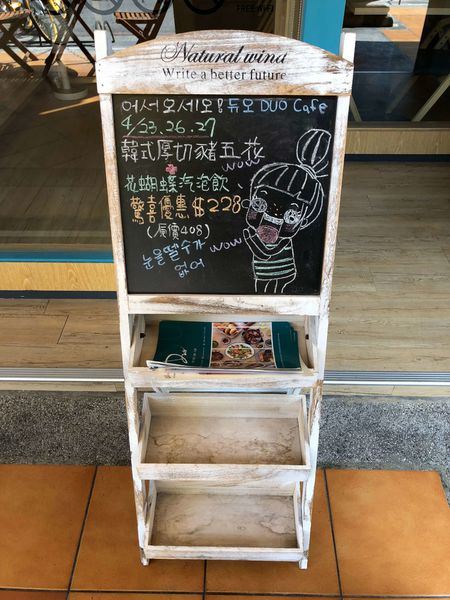 FREE WI-FI
Natural wind
Write a better future
어서오세요! 듀오 DUO Cafe
4/23.26.27
韓式厚切豬五花
wow
花蝴蝶汽泡飲
驚喜優惠 $228
(原價408)
wow
눈을뗄수가
없어
wow
Duo